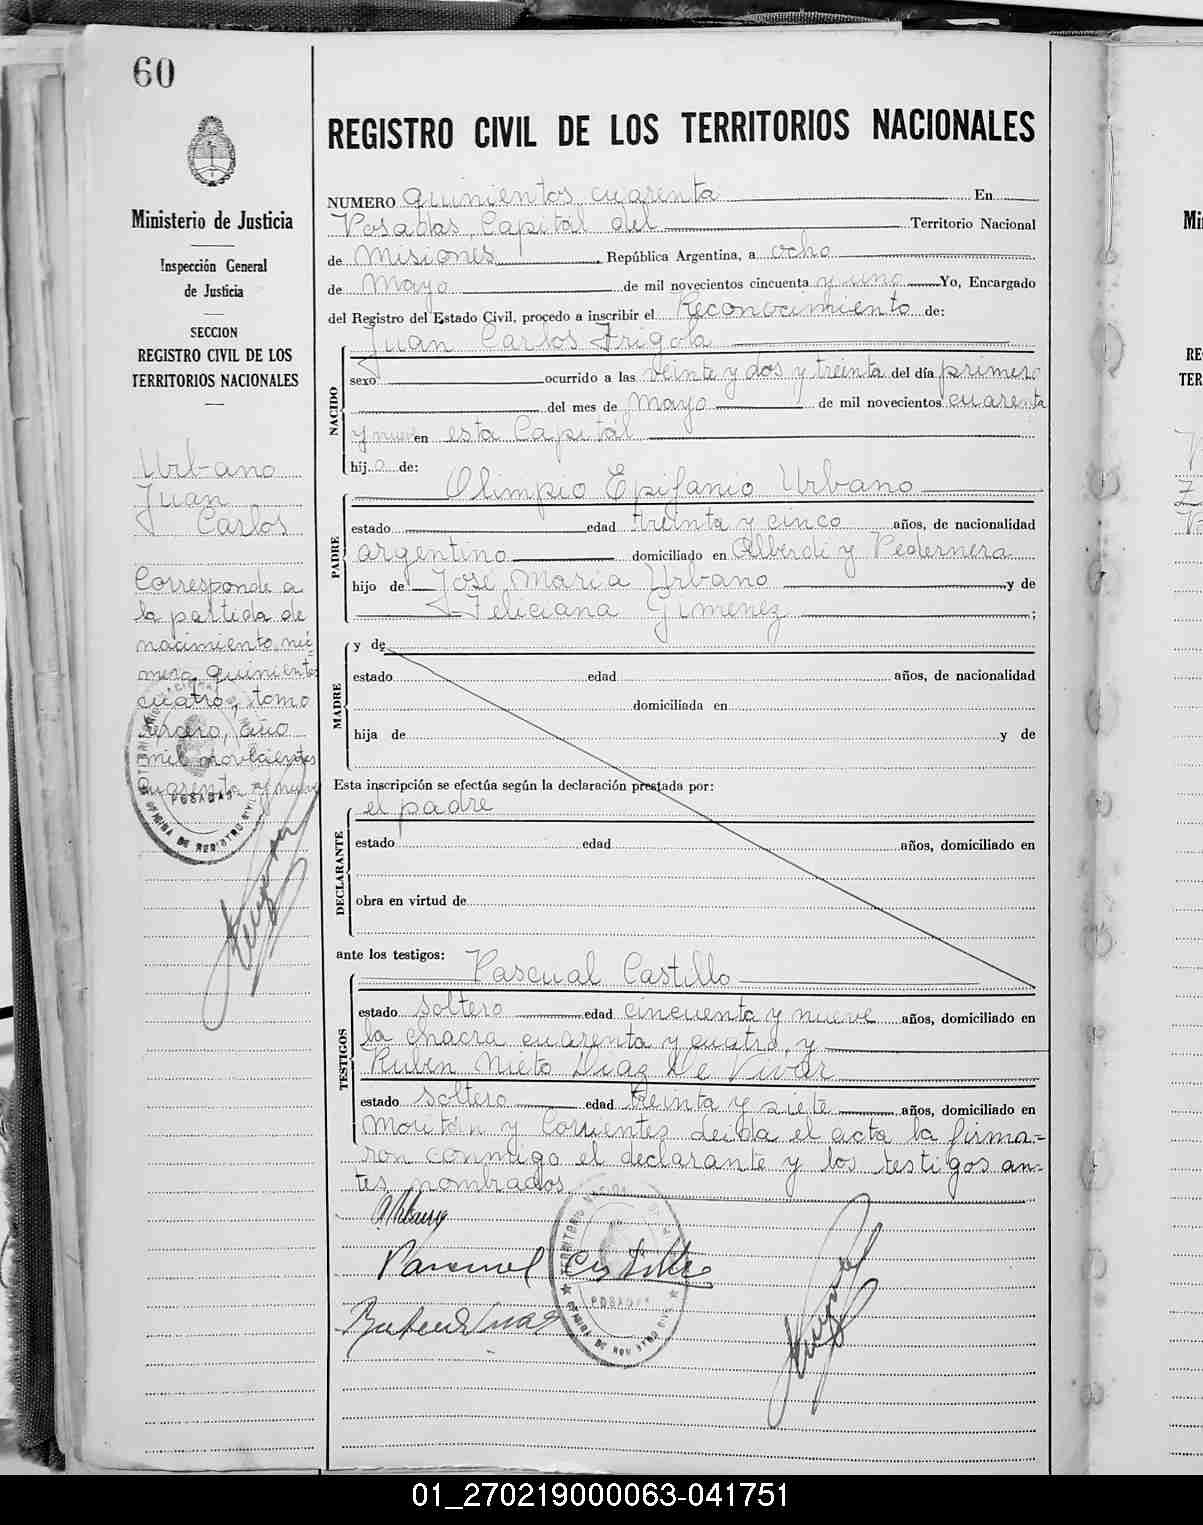 60
Ministerio de Justicia
Inspección General
de Justicia
SECCION
REGISTRO CIVIL DE LOS
TERRITORIOS NACIONALES
Urbano
Juan
Carlos
Corresponde a
la partida de
nacimiento nú-
mero quinientos
cuatro, tomo
tercero, año
mil novecientos
cuarenta y nueve
POSADAS
OFICINA DE REGISTRO CIVIL
REGISTRO CIVIL DE LOS TERRITORIOS NACIONALES
NUMERO quinientos cuarenta En
Posadas, Capital del Territorio Nacional
de Misiones República Argentina, a ocho
de Mayo de mil novecientos cincuenta y uno Yo, Encargado
del Registro del Estado Civil, procedo a inscribir el Reconocimiento de:
Juan Carlos Frigola
NACIDO
sexo ocurrido a las veinte y dos y treinta del día primero
del mes de Mayo de mil novecientos cuarenta
y nueve en esta Capital
hijo de:
Olimpio Epifanio Urbano
PADRE
estado edad treinta y cinco años, de nacionalidad
argentino domiciliado en Alberdi y Pedernera
hijo de José María Urbano y de
Feliciana Gimenez ;
MADRE
y de
estado edad años, de nacionalidad
domiciliada en
hija de y de
Esta inscripción se efectúa según la declaración prestada por:
el padre
DECLARANTE
estado edad años, domiciliado en
obra en virtud de
ante los testigos:
Pascual Castillo
TESTIGOS
estado soltero edad cincuenta y nueve años, domiciliado en
la chacra cuarenta y cuatro, y
Ruben Nieto Diaz De Vivar
estado soltero edad treinta y siete años, domiciliado en
Moritán y Corrientes leida el acta la firma-
ron conmigo el declarante y los testigos an-
tes nombrados
Pascual Castillo
POSADAS
01_270219000063-041751